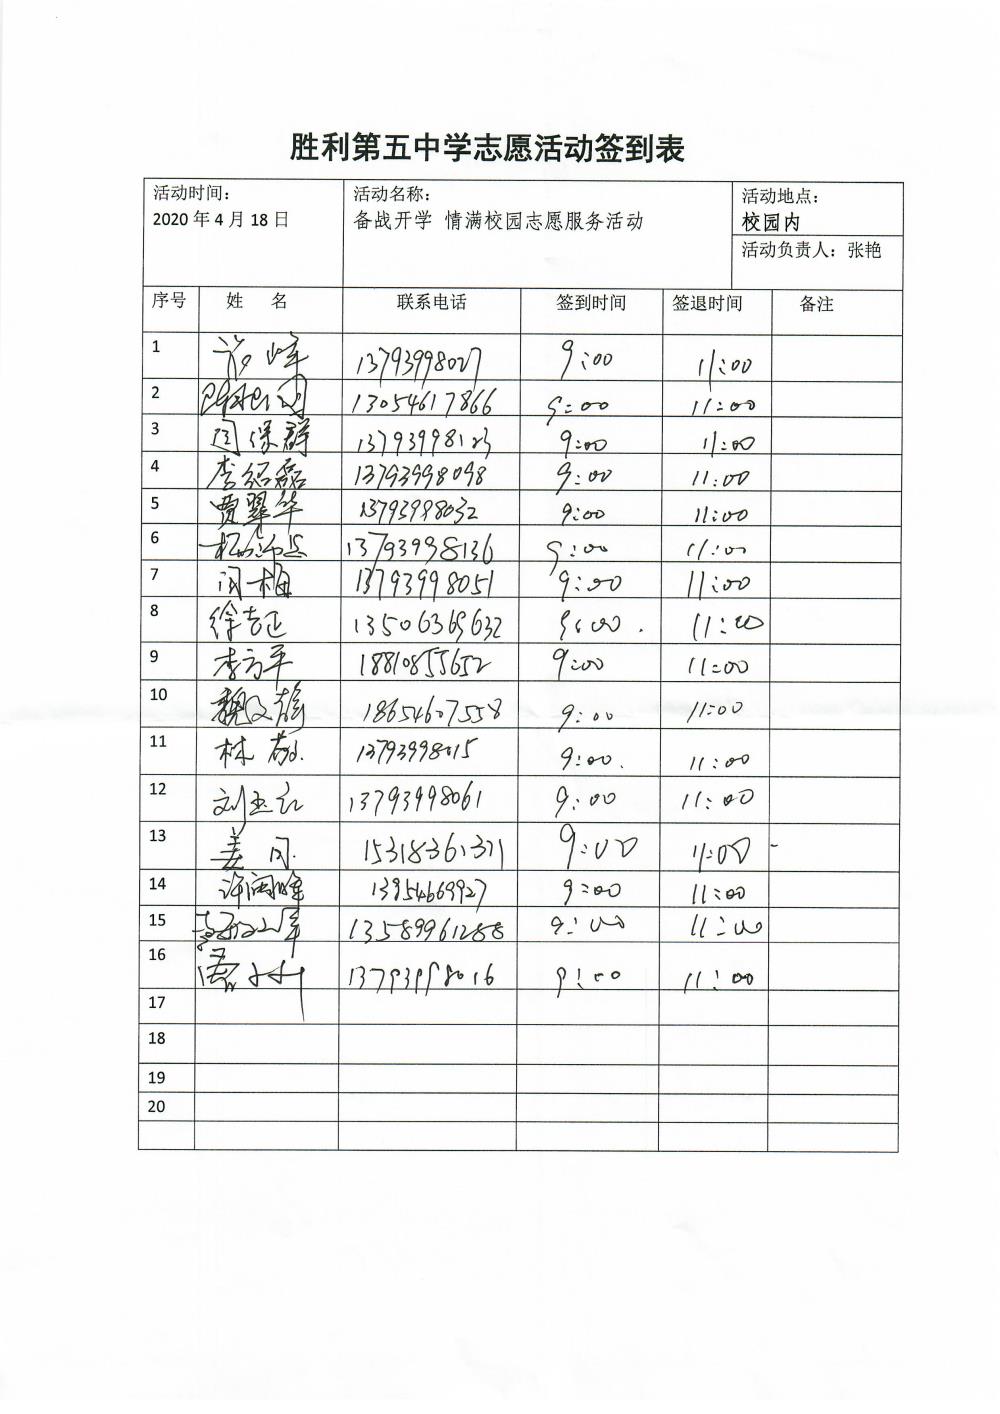 胜利第五中学志愿活动签到表
活动时间： 活动名称： 活动地点：
2020 年 4 月 18 日 备战开学 情满校园志愿服务活动 校园内
活动负责人：张艳
序号 姓 名 联系电话 签到时间 签退时间 备注
1 峰 13793998027 9:00 11:00
2 13054617866 9:00 11:00
3 闫保群 13793998123 9:00 11:00
4 李绍磊 13793998098 9:00 11:00
5 贾翠华 13793998032 9:00 11:00
6 13793998136 9:00 11:00
7 闫梅 13793998051 9:00 11:00
8 徐志正 13506369632 9:00. 11:00
9 李方平 18810855652 9:00 11:00
10 魏 18654607558 9:00 11:00
11 林 13793998015 9:00. 11:00
12 刘玉红 13793998061 9:00 11:00
13 姜 15318361311 9:00 11:00
14 许 13954669927 9:00 11:00
15 13589961288 9:00 11:00
16 13793998016 9:00 11:00
17
18
19
20